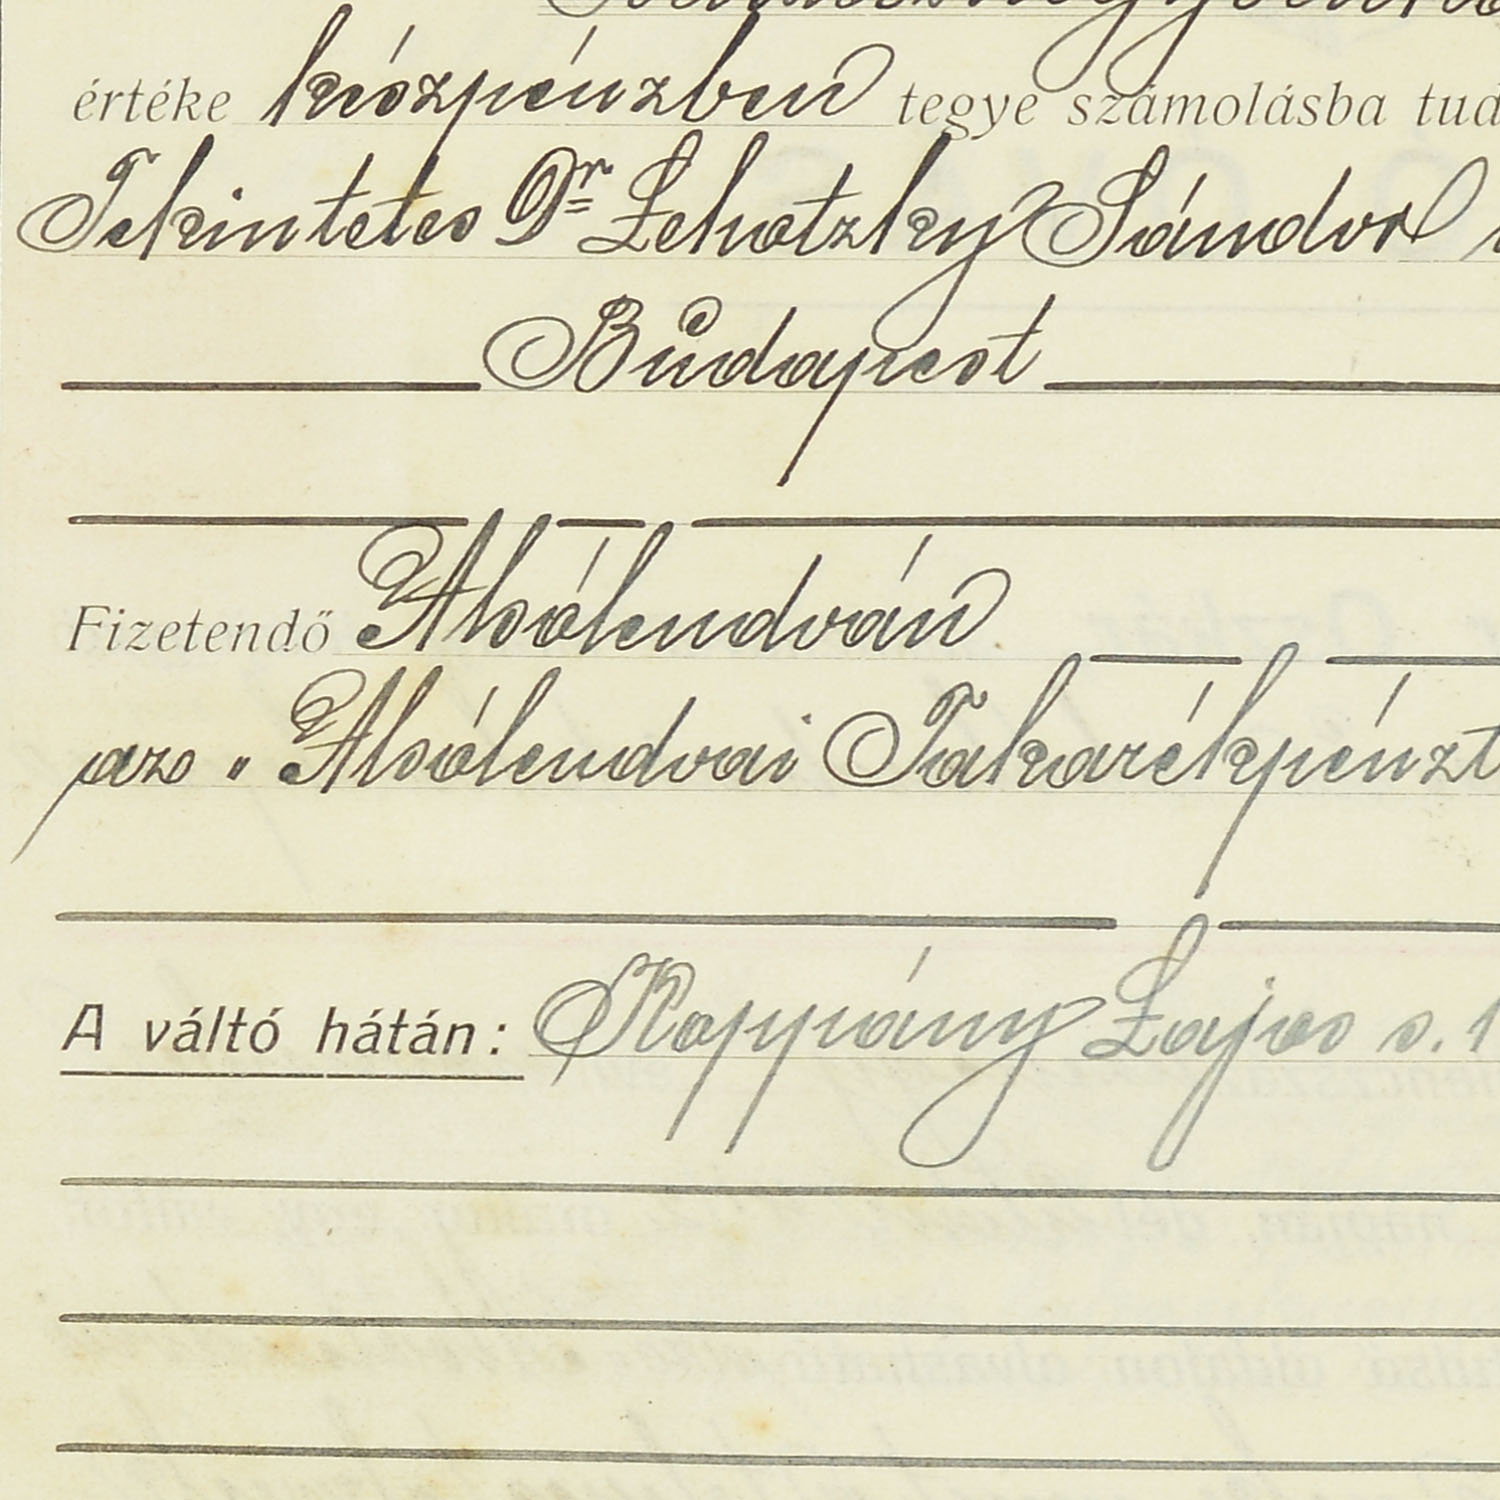 értéke készpénzben tegye számolásba tud
Tekintetes Dr Lehotzky Sándor
Budapest
Fizetendő Alsólendván
az „Alsólendvai Takarékpénzt
A váltó hátán: Koppány Lajos s.